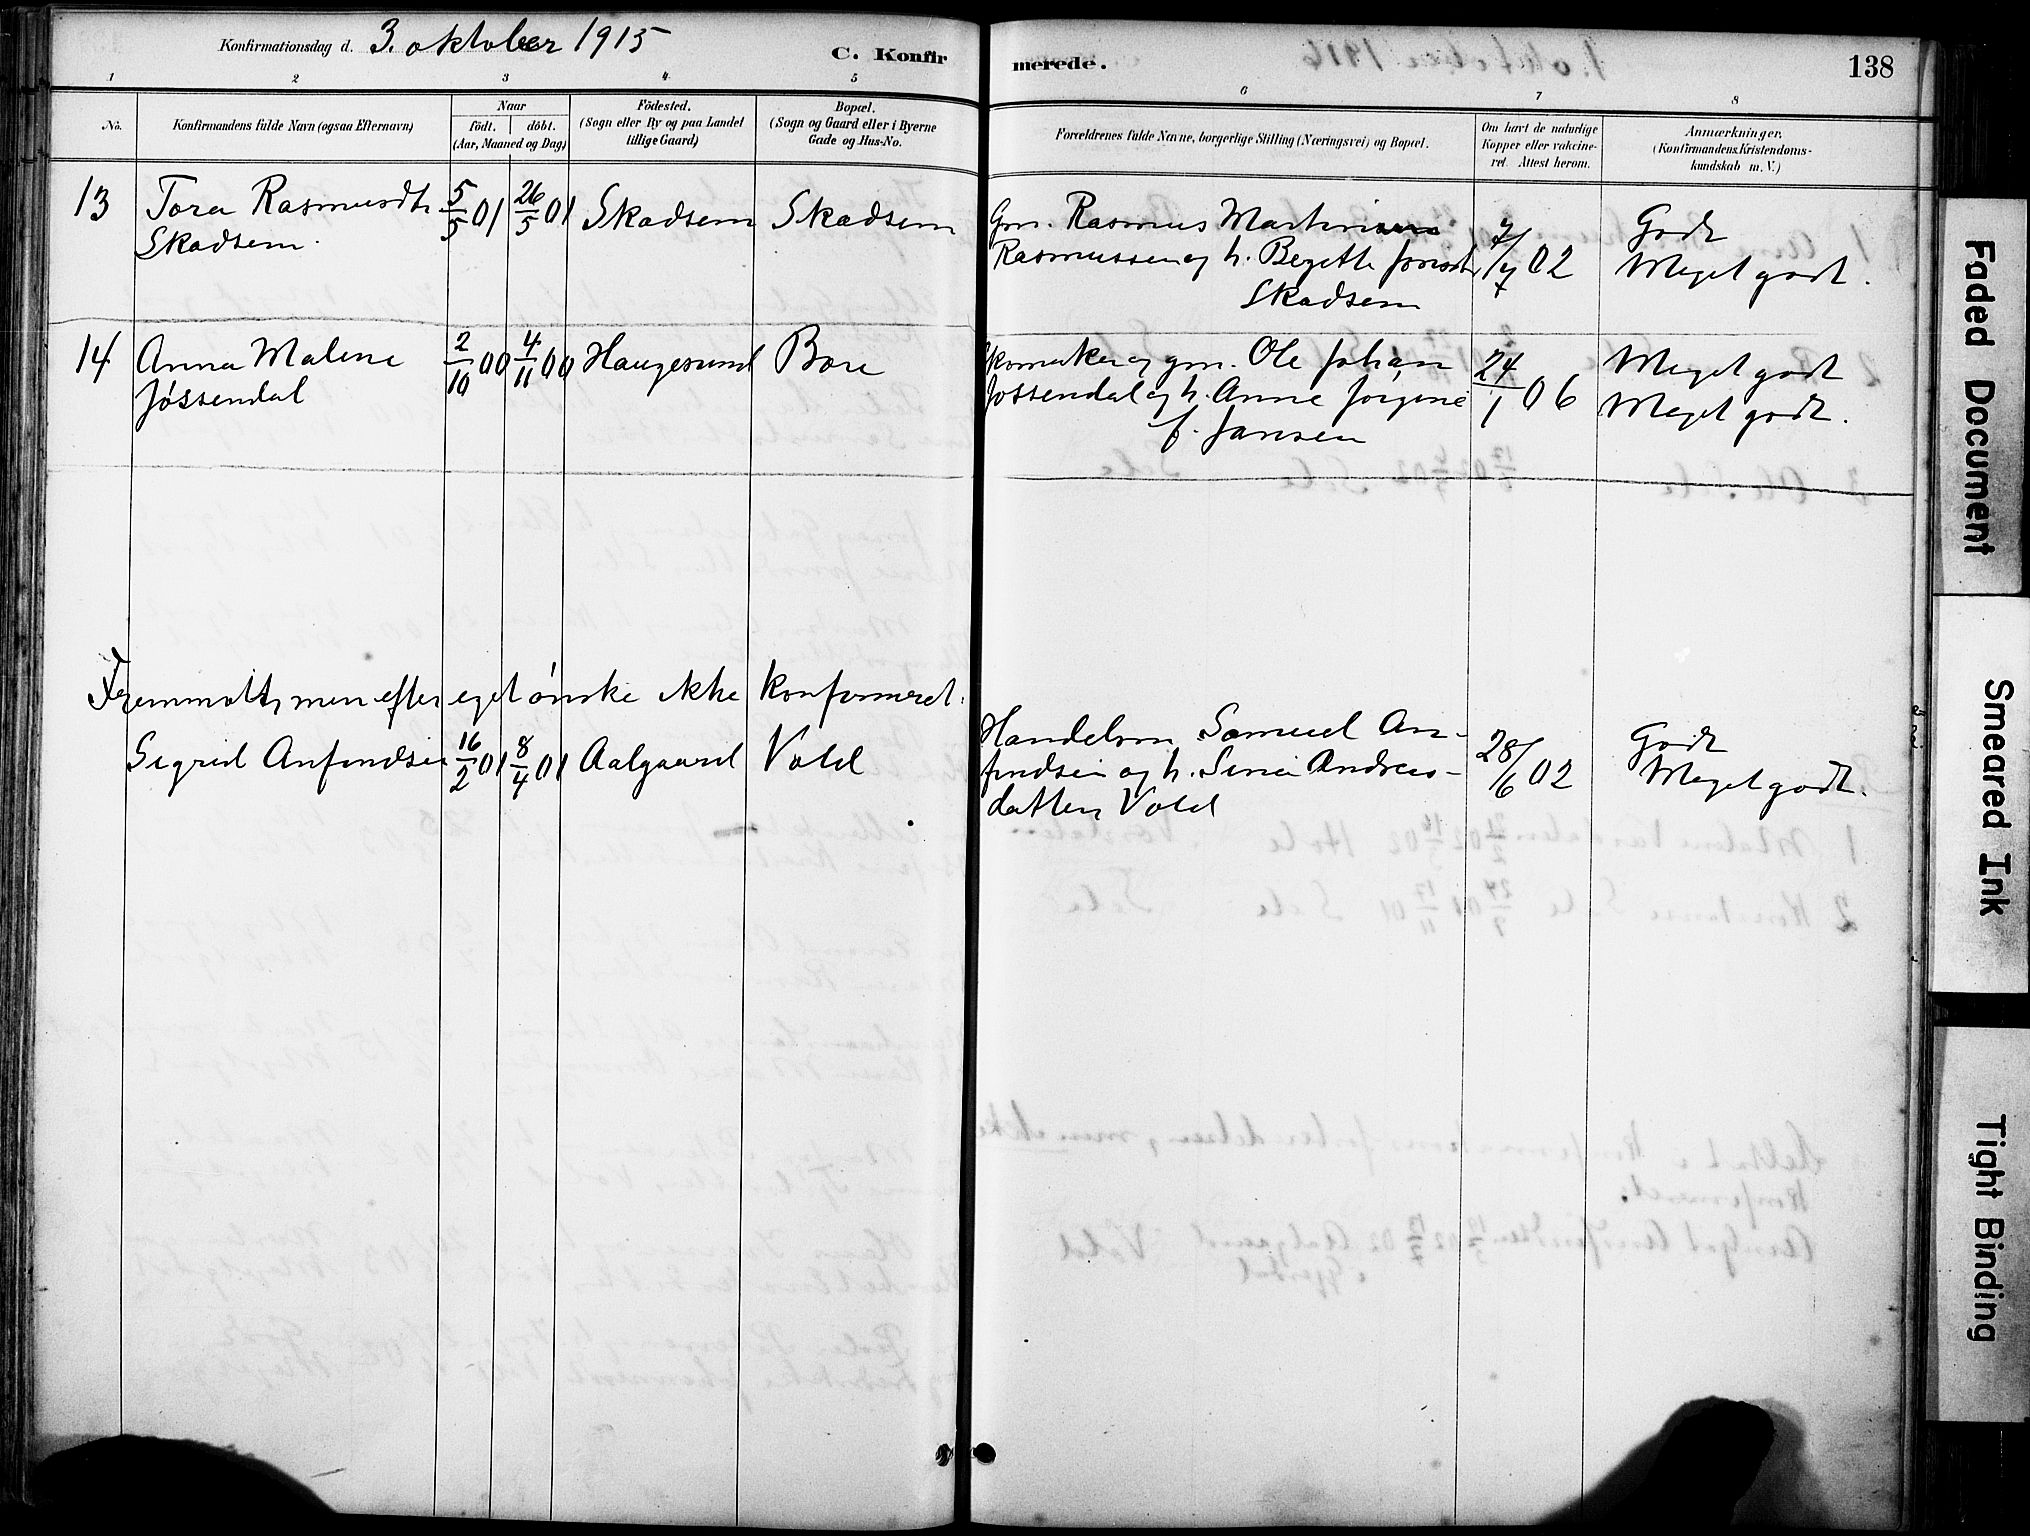 Konfirmationsdag d. 3. oktober 1915
C. Konfir
merede.
138
1 2 3 4 5 6 7 8
No.
Konfirmandens fulde Navn (ogsaa Efternavn)
Naar
födt. döbt.
(Aar, Maaned og Dag)
Födested.
(Sogn eller By og paa Landet
tillige Gaard)
Bopæl.
(Sogn og Gaard eller i Byerne
Gade og Hus-No.
Forældrenes fulde Navne, borgerlige Stilling (Næringsvei) og Bopæl.
Om havt de naturlige
Kopper eller vakcine-
ret. Attest herom.
Anmærkninger.
(Konfirmandens Kristendoms-
kundskab m. V.)
13 Tora Rasmusdtr 5/5 01 26/5 01 Skadsem Skadsem Gm. Rasmus Martin 02 Godt
Skadsem. Rasmussen og h. Meget godt.
Skadsem
14 Anna Maline 2/10 00 4/11 00 Haugesund Bore Skomaker og gm. Ole Johan 24/1 06 Meget godt
Jøssendal Jøssendal og h. Anne Jørgine Meget godt.
f. Jansen
Fremmött, men efter eget önske ikke konfirmeret.
Sigrid Anfindsen 16/2 01 8/4 01 Aalgaard Vold Handelsm. Samuel An- 28/6 02 Godt
findsen og h. Sine Andreas- Meget godt.
datter, Vold
Faded Document
Smeared Ink
Tight Binding